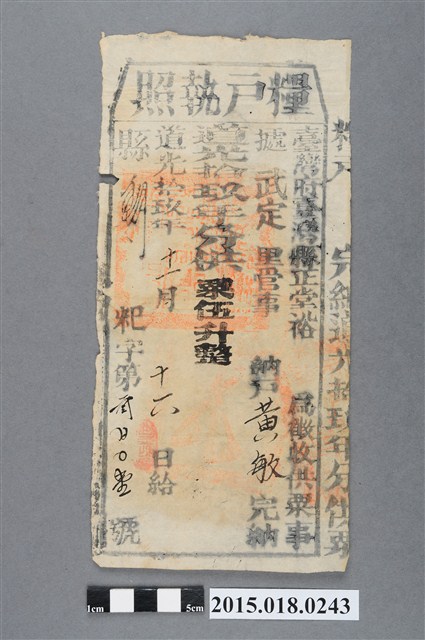 糧戶執照
臺灣府臺灣縣正堂裕 為徵收供粟事
據 武定 里管事 納戶 黃敏 完納
道光拾玖年分供粟伍升整
道光拾玖年 十一月 十六 日給
縣 粃字第 號
完納道光拾玖年分供粟
1cm 5cm 2015.018.0243